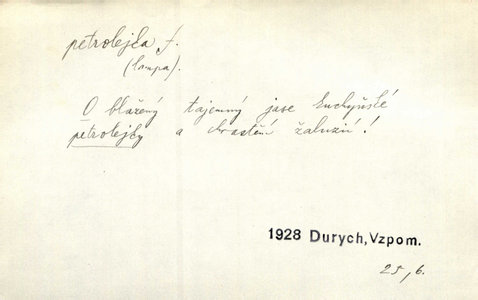 petrolejka f.
(lampa).
O blažený tajemný jase kuchyňské
petrolejky a chrastění žaluzií!
1928 Durych, Vzpom.
25, 6.